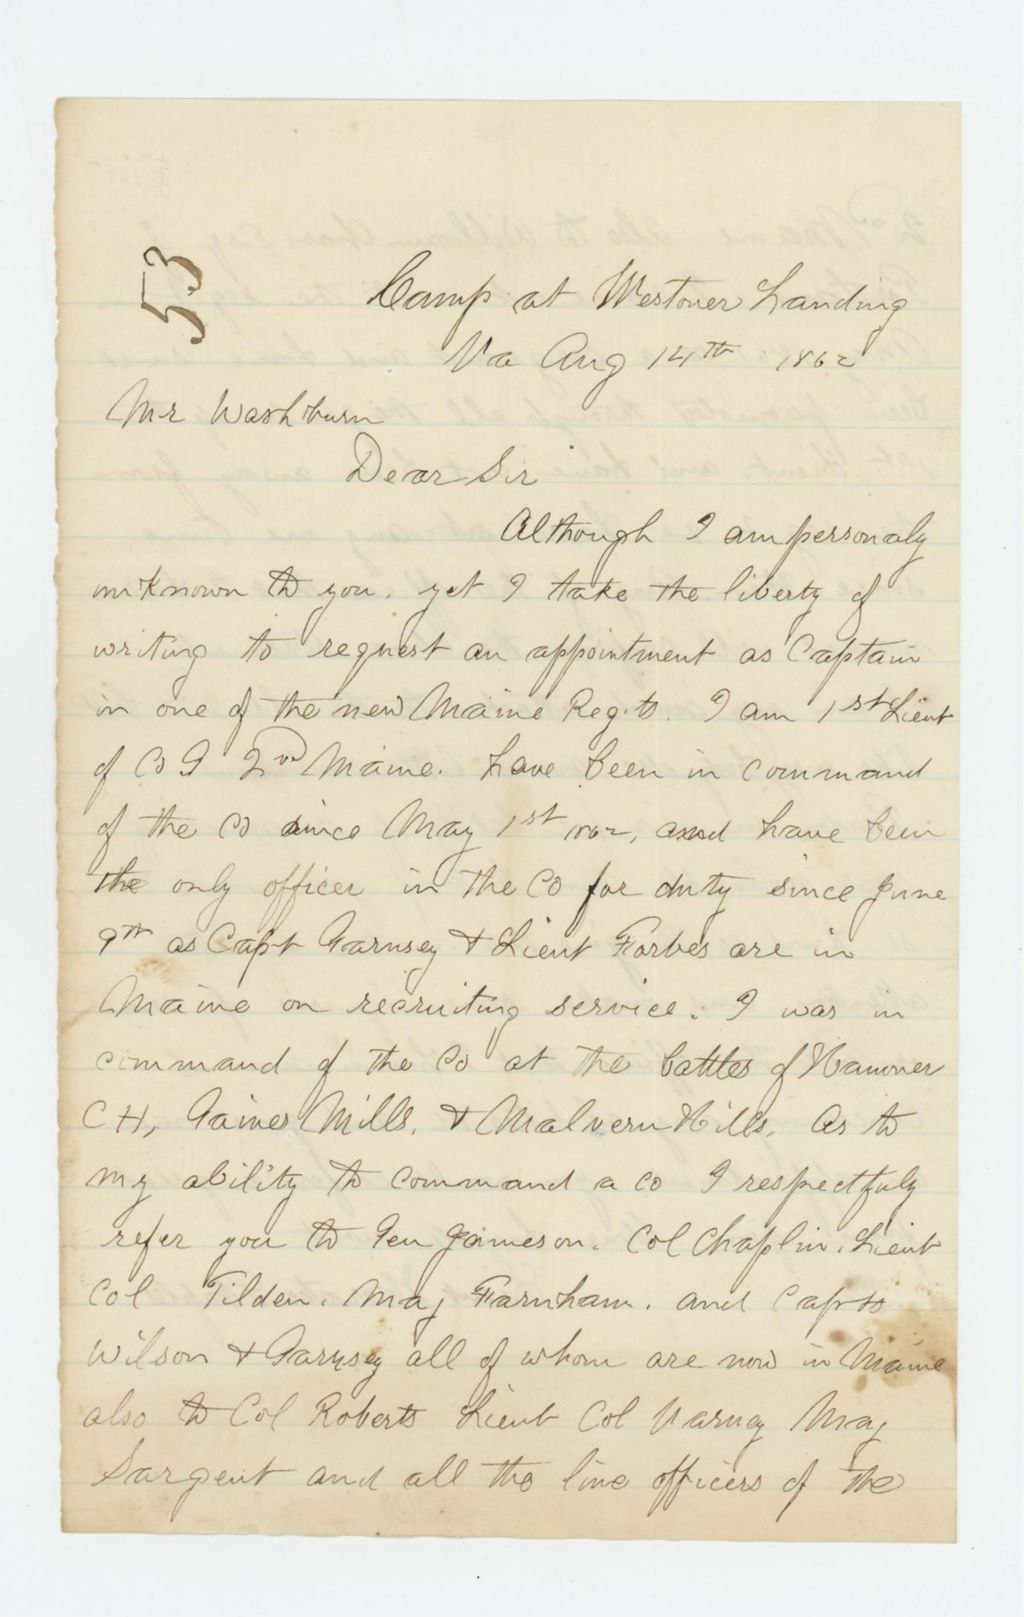 53
Camp at Westover Landing
Va Aug 14th 1862
Mr Washburn
Dear Sir
Although I am personaly
unknown to you. yet I take the liberty of
writing to request an appointment as Captain
in one of the new Maine Regts. I am 1st Lieut
of Co G 2nd Maine. have been in command
of the Co since May 1st 1862, and have been
the only officer in the Co for duty since June
9th as Capt Garnsey & Lieut Forbes are in
Maine on recruiting service. I was in
command of the Co at the battles of Hanover
CH, Gaines Mills, & Malvern Hills. As to
my ability to command a co I respectfuly
refer you to Gen Jameson. Col Chaplin. Lieut
Col Tilden. Maj Farnham. and Capts
Wilson & Garnsey all of whom are now in Maine
also to Col Roberts Lieut Col Varney Maj
Sargent and all the line officers of the